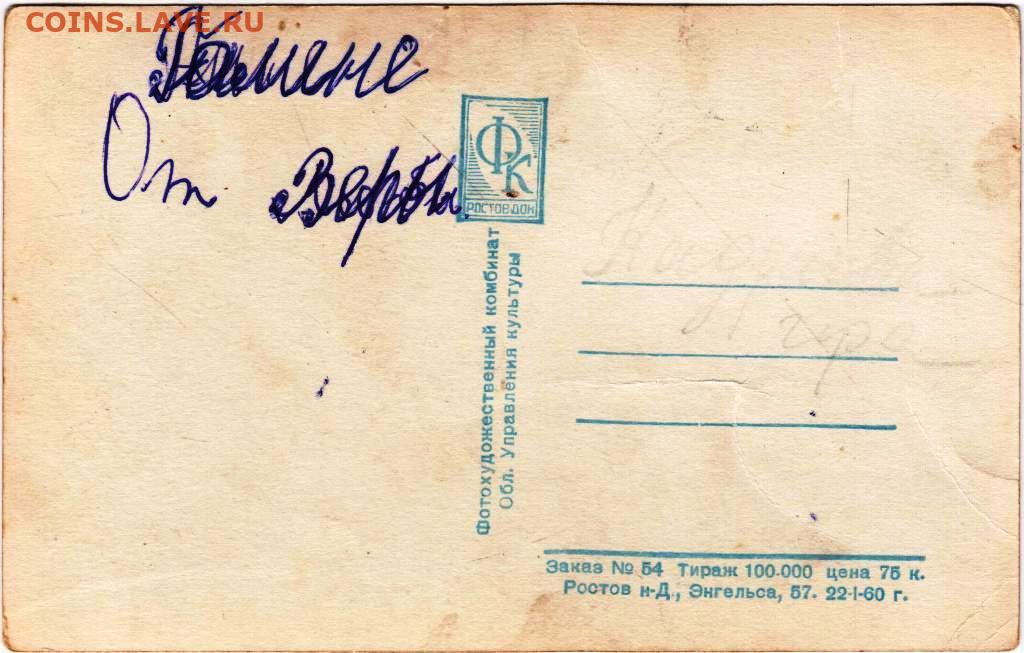 COINS.LAVE.RU
От Веры
ФК
РОСТОВ ДОН
Фотохудожественный комбинат
Обл. Управления культуры
Заказ № 54 Тираж 100.000 цена 75 к.
Ростов н-Д., Энгельса, 57. 22-I-60 г.